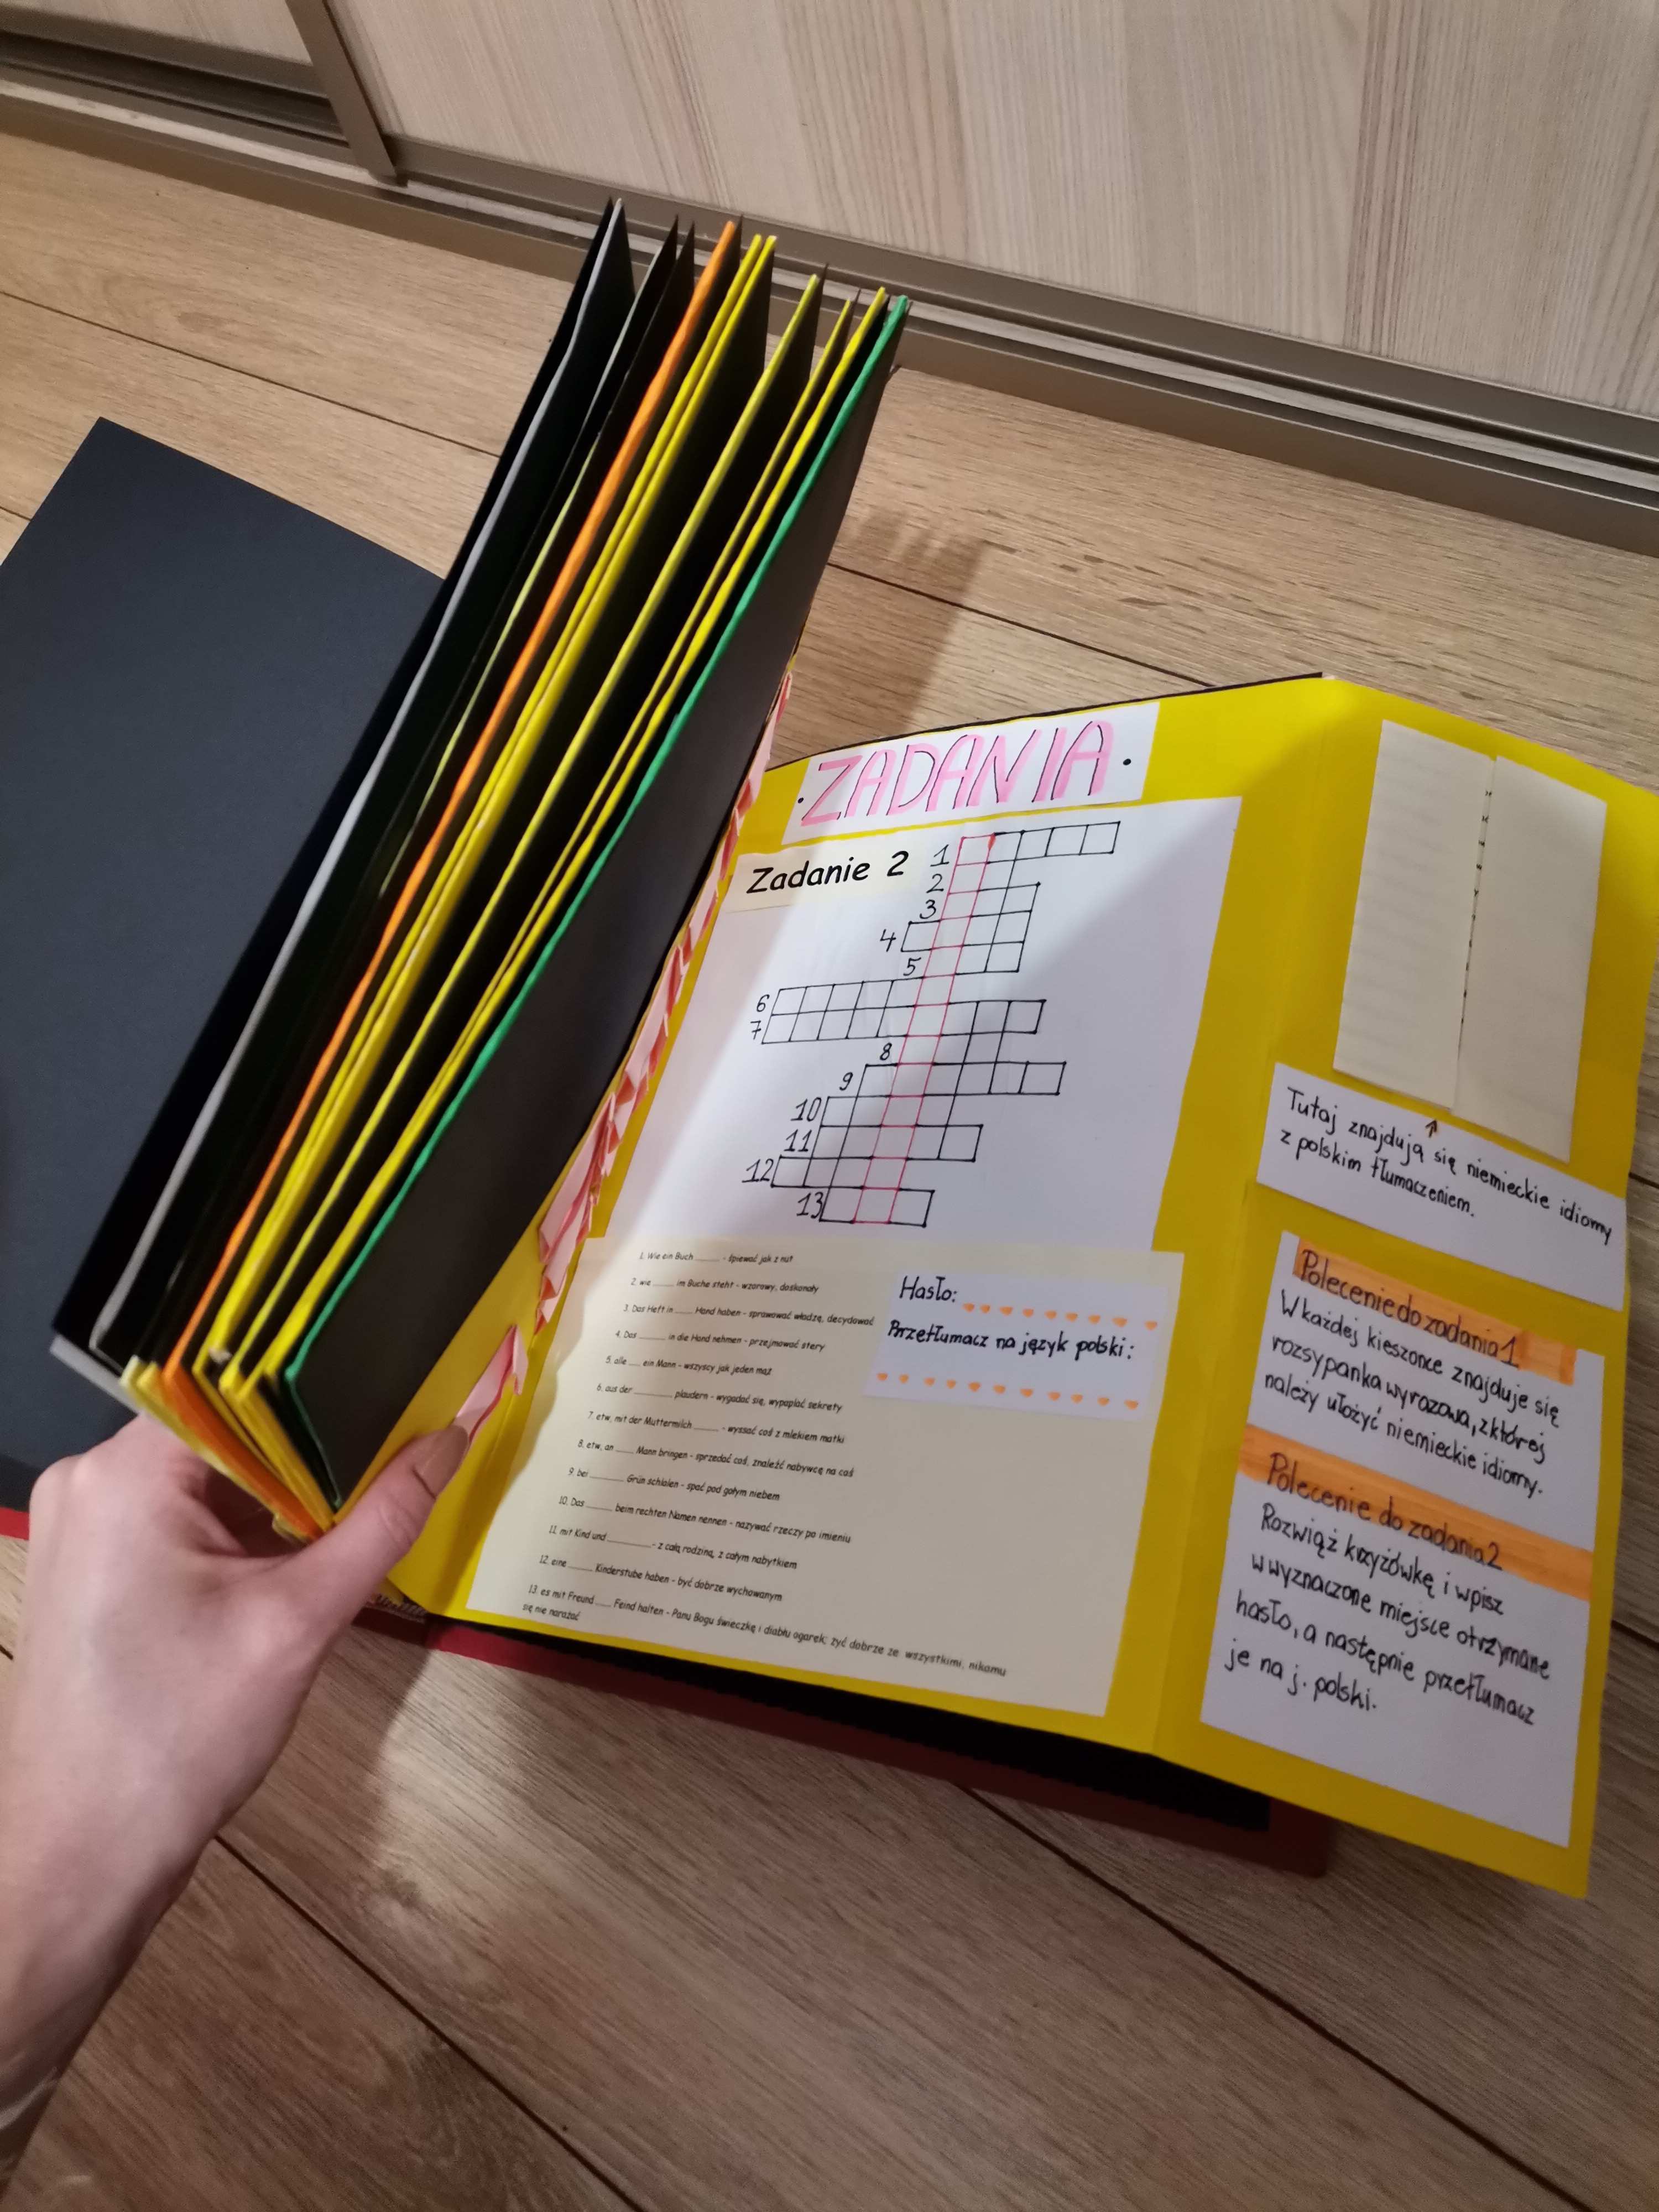 •ZADANIA•
Zadanie 2
1
2
3
4
5
6
7
8
9
10
11
12
13
1. Wie ein Buch ______ - śpiewać jak z nut
2. wie ______ im Buche steht - wzorowy, doskonały
3. Das Heft in ______ Hand haben - sprawować władzę, decydować
4. Das ______ in die Hand nehmen - przejmować stery
5. alle ___ ein Mann - wszyscy jak jeden mąż
6. aus der ________ plaudern - wygadać się, wypaplać sekrety
7. etw. mit der Muttermilch ______ - wyssać coś z mlekiem matki
8. etw. an ____ Mann bringen - sprzedać coś, znaleźć nabywcę na coś
9. bei ______ Grün schlafen - spać pod gołym niebem
10. Das ______ beim rechten Namen nennen - nazywać rzeczy po imieniu
11. mit Kind und ________ - z całą rodziną, z całym nabytkiem
12. eine _____ Kinderstube haben - być dobrze wychowanym
13. es mit Freund ____ Feind halten - Panu Bogu świeczkę i diabłu ogarek; żyć dobrze ze wszystkimi, nikomu
się nie narażać
Hasło:
Przetłumacz na język polski:
Tutaj znajdują się niemieckie idiomy
z polskim tłumaczeniem.
Polecenie do zadania 1
W każdej kieszonce znajduje się
rozsypanka wyrazowa, z której
należy ułożyć niemieckie idiomy.
Polecenie do zadania 2
Rozwiąż krzyżówkę i wpisz
w wyznaczone miejsce otrzymane
hasło, a następnie przetłumacz
je na j. polski.